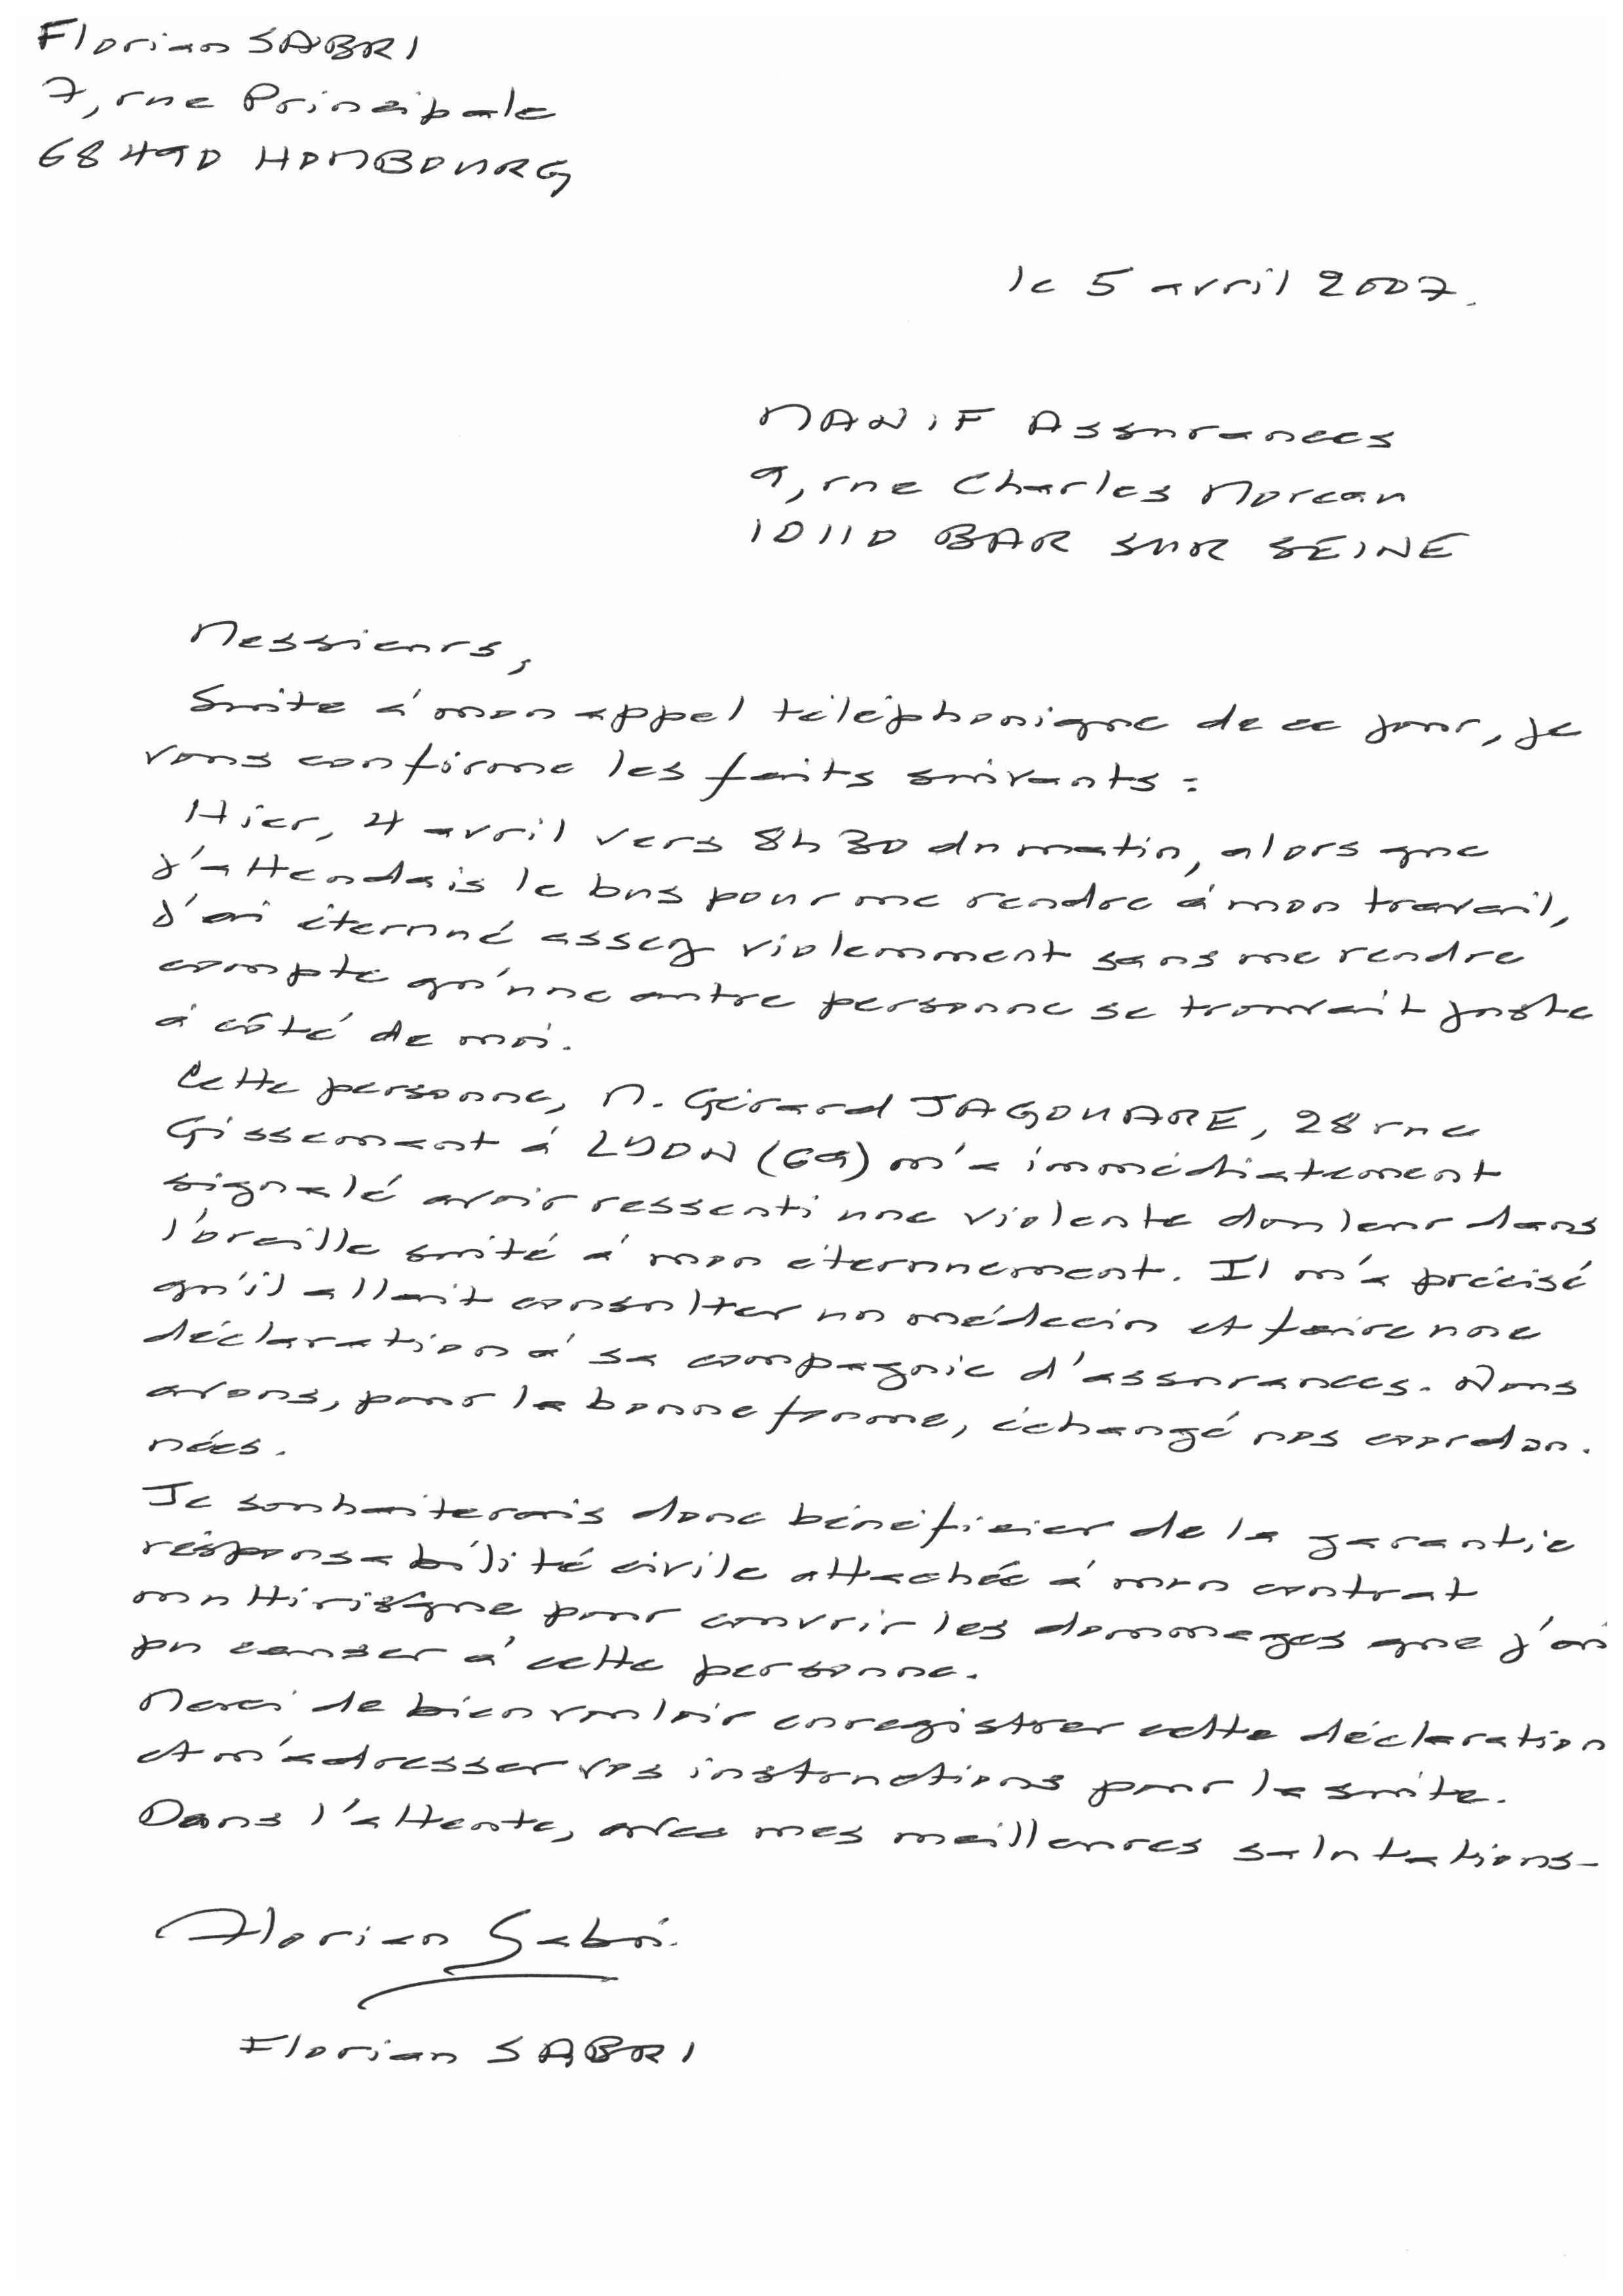 Florian SABRI
7, rue Principale
68490 HOMBOURG
le 5 avril 2007.
MANIF Assurances
9, rue Charles Moreau
10110 BAR SUR SEINE
Messieurs,
Suite à mon appel téléphonique de ce jour, je
vous confirme les faits suivants :
Hier, 4 avril vers 8h30 du matin, alors que
j'attendais le bus pour me rendre à mon travail,
j'ai éternué assez violemment sans me rendre
compte qu'une autre personne se trouvait juste
à côté de moi.
Cette personne, M. Gérard JAGOUARE, 28 rue
Gissemant à LYON (69) m'a immédiatement
signalé avoir ressenti une violente douleur dans
l'oreille suité à mon éternuement. Il m'a précisé
qu'il allait consulter un médecin et faire une
déclaration à sa compagnie d'assurances. Nous
avons, pour la bonne forme, échangé nos coordon.
nées.
Je souhaiterais donc bénéficier de la garantie
résponsabilité civile attachée à mon contrat
multirisque pour couvrir les dommages que j'ai
pu causer à cette personne.
Merci de bien vouloir enregistrer cette déclaration
et m'adresser vos instructions pour la suite.
Dans l'attente, avec mes meilleures salutations-
Florian Sabri.
Florian SABRI